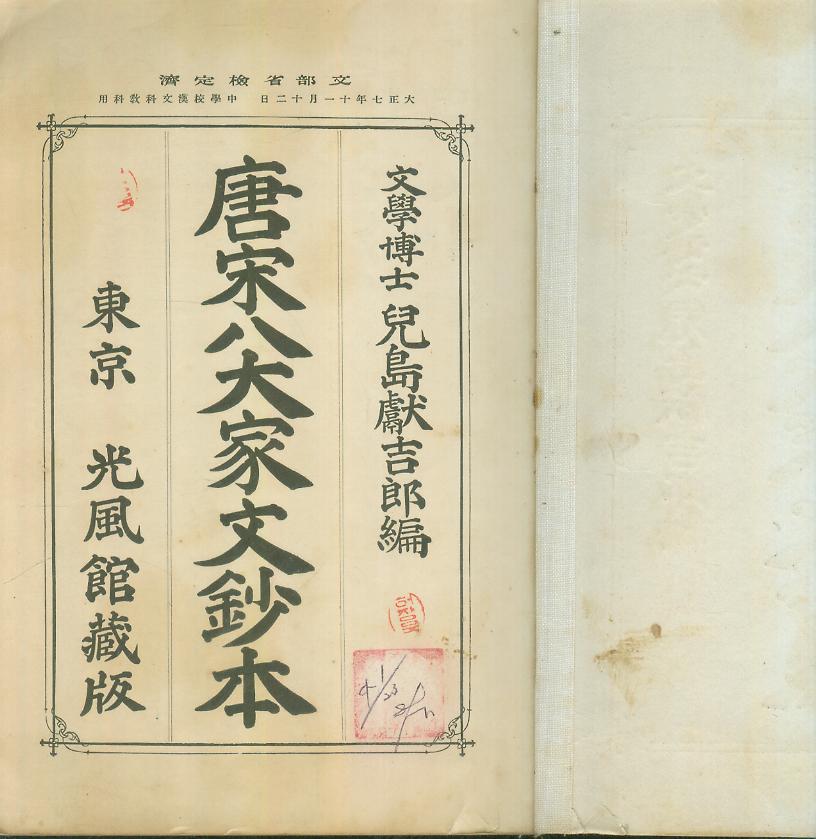 文部省檢定濟
大正七年十一月十二日 中學校漢文科教科用
文學博士 兒島獻吉郎編
唐宋八大家文鈔本
東京 光風館藏版